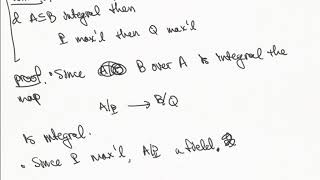 d A⊆B integral then
P max'l then Q max'l
proof. • Since B over A is integral the
map
A/P → B/Q
is integral.
• Since P max'l, A/P a field.